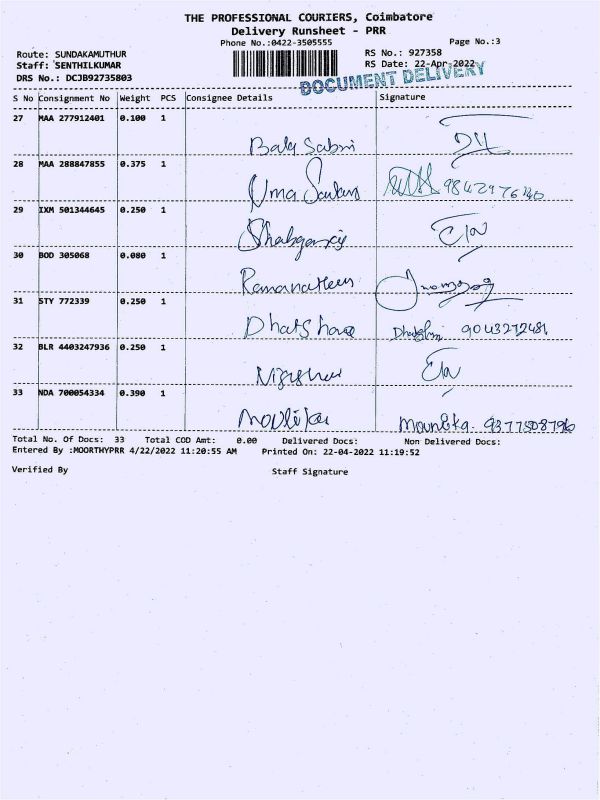 THE PROFESSIONAL COURIERS, Coimbatore
Delivery Runsheet - PRR
Phone No.:0422-3505555
Page No.:3
Route: SUNDAKAMUTHUR
RS No.: 927358
Staff: SENTHILKUMAR
RS Date: 22-Apr-2022
DRS No.: DCJB92735803
DOCUMENT DELIVERY
S No Consignment No Weight PCS Consignee Details Signature
27 MAA 277912401 0.100 1
Bala Sabri
28 MAA 288847855 0.375 1
Uma
29 IXM 501344645 0.250 1
30 BOD 305068 0.080 1
31 STY 772339 0.250 1
9043272481
32 BLR 4403247936 0.250 1
33 NDA 700054334 0.390 1
Mounika. 9377508796
Total No. Of Docs: 33 Total COD Amt: 0.00 Delivered Docs: Non Delivered Docs:
Entered By :MOORTHYPRR 4/22/2022 11:20:55 AM Printed On: 22-04-2022 11:19:52
Verified By Staff Signature